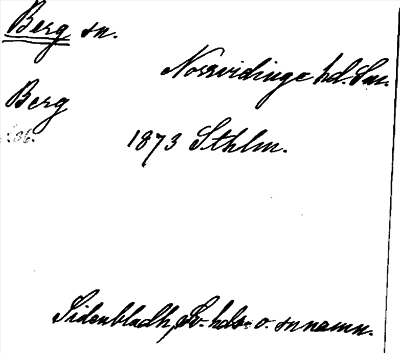 Berg sn.
Norrvidinge hd. Sm.
Berg
s. 36.
1873 Sthlm.
Sidenbladh, Sv. hds- o. snnamn.